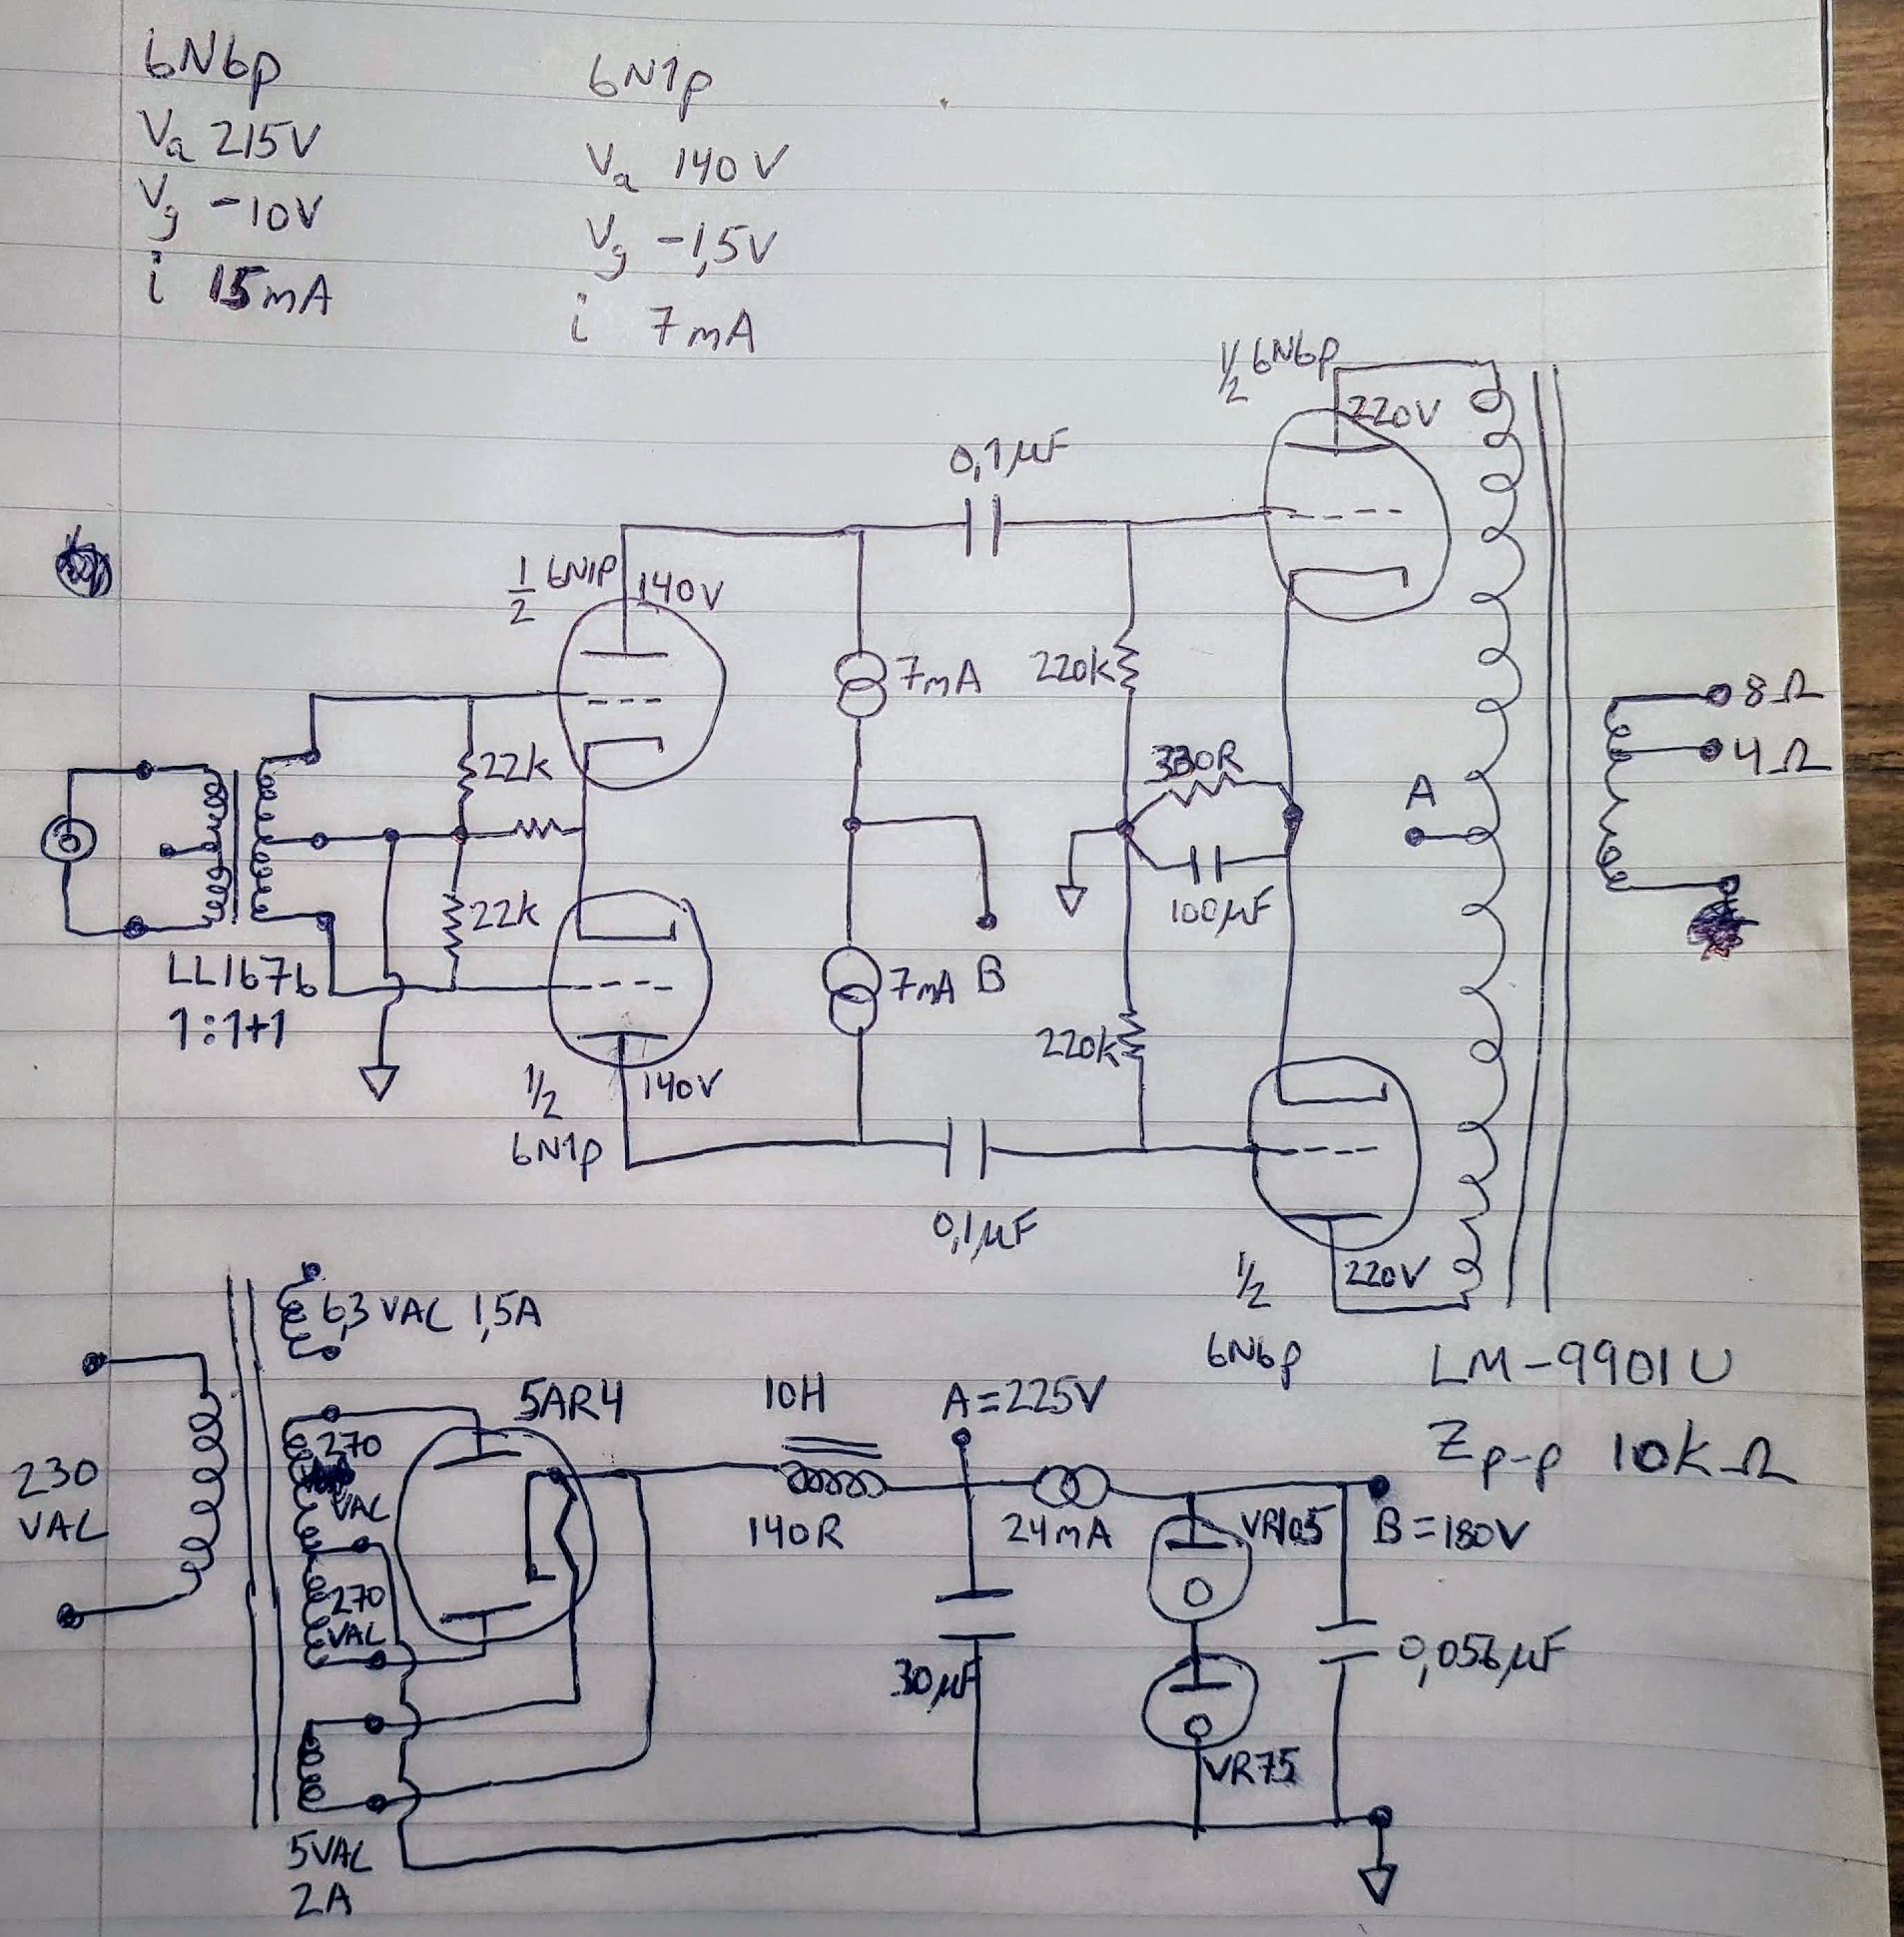 6N6p
Va 215V
Vg -10V
i 15mA
6N1p
Va 140V
Vg -1,5V
i 7mA
1/2 6N6p
220V
0,1µF
1/2 6N1P
140V
7mA
220k
22k
330R
A
8Ω
4Ω
22k
100µF
LL1676
1:1+1
7mA
B
220k
1/2
6N1p
140V
0,1µF
1/2
6N6p
220V
LM-9901U
Zp-p 10kΩ
6,3 VAC 1,5A
5AR4
10H
A=225V
230
VAC
270
VAC
270
VAC
140R
24mA
VR105
B=180V
30µF
0,056µF
VR75
5VAC
2A